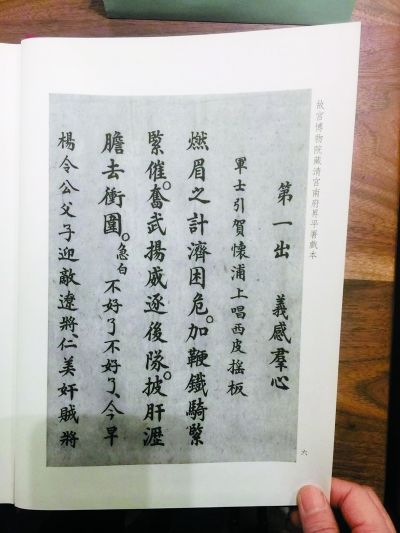 故宮博物院藏清宮南府昇平署戲本
第一出　義感羣心
軍士引賀懷浦上唱西皮搖板
燃眉之計濟困危。加鞭鐵騎緊
緊催。奮武揚威逐後隊。披肝瀝
膽去衝圍。急白 不好了不好了、今早
楊令公父子迎敵遼將仁美奸賊將
六